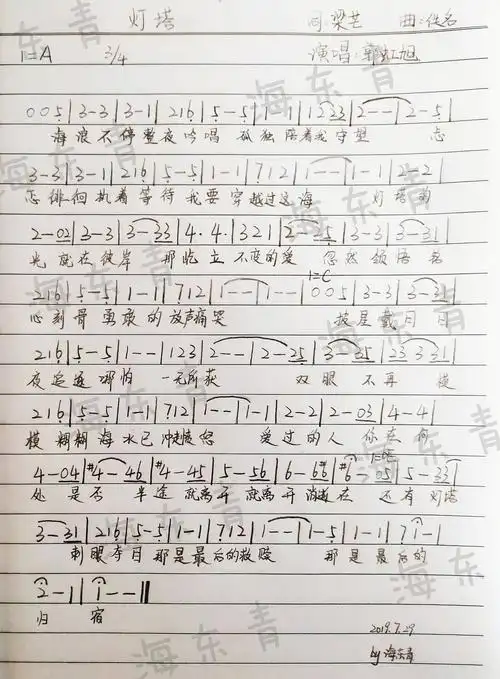 灯塔 词:梁芒 曲:佚名
1=A 3/4 演唱:郭虹旭
005|3-3|3-1|216|5-5|1-1|1223|2--|2-5|
海浪不停整夜吟唱 孤独陪着我守望 忐
3-3|3-1|216|5-5|1-1|712|1--|1-1|2-2|
忑徘徊执着等待我要穿越过这海 灯塔的
2-02|3-3|3-33|4·4·|321|2-25|3-3|3-31|
光就在彼岸 那屹立不变的爱 忽然领悟铭
1=C
216|5-5|1-1|712|1--|1--|005|3-3|3-31|
心刻骨勇敢的放声痛哭 披星戴月日
216|5-5|1--|123|2--|2-25|3-35|23 331|
夜追逐哪怕一无所获 双眼不再模
216|5-5|1-1|712|1--|1-1|2-2|2-03|4-4|
模糊糊海水已冲走你 爱过的人 你在何
4-04|#4-46|#4-45|5-56|6-6#6|#6-05|5-33|
处 是否 半途就离开就离开消散在 还有灯塔
3-31|216|5-5|1-1|712|1--|1-5|1-1|71-|
刺眼夺目那是最后的救赎 那是最后的
2-1|1--‖
归 宿
2019.7.29
by海东青
海东青